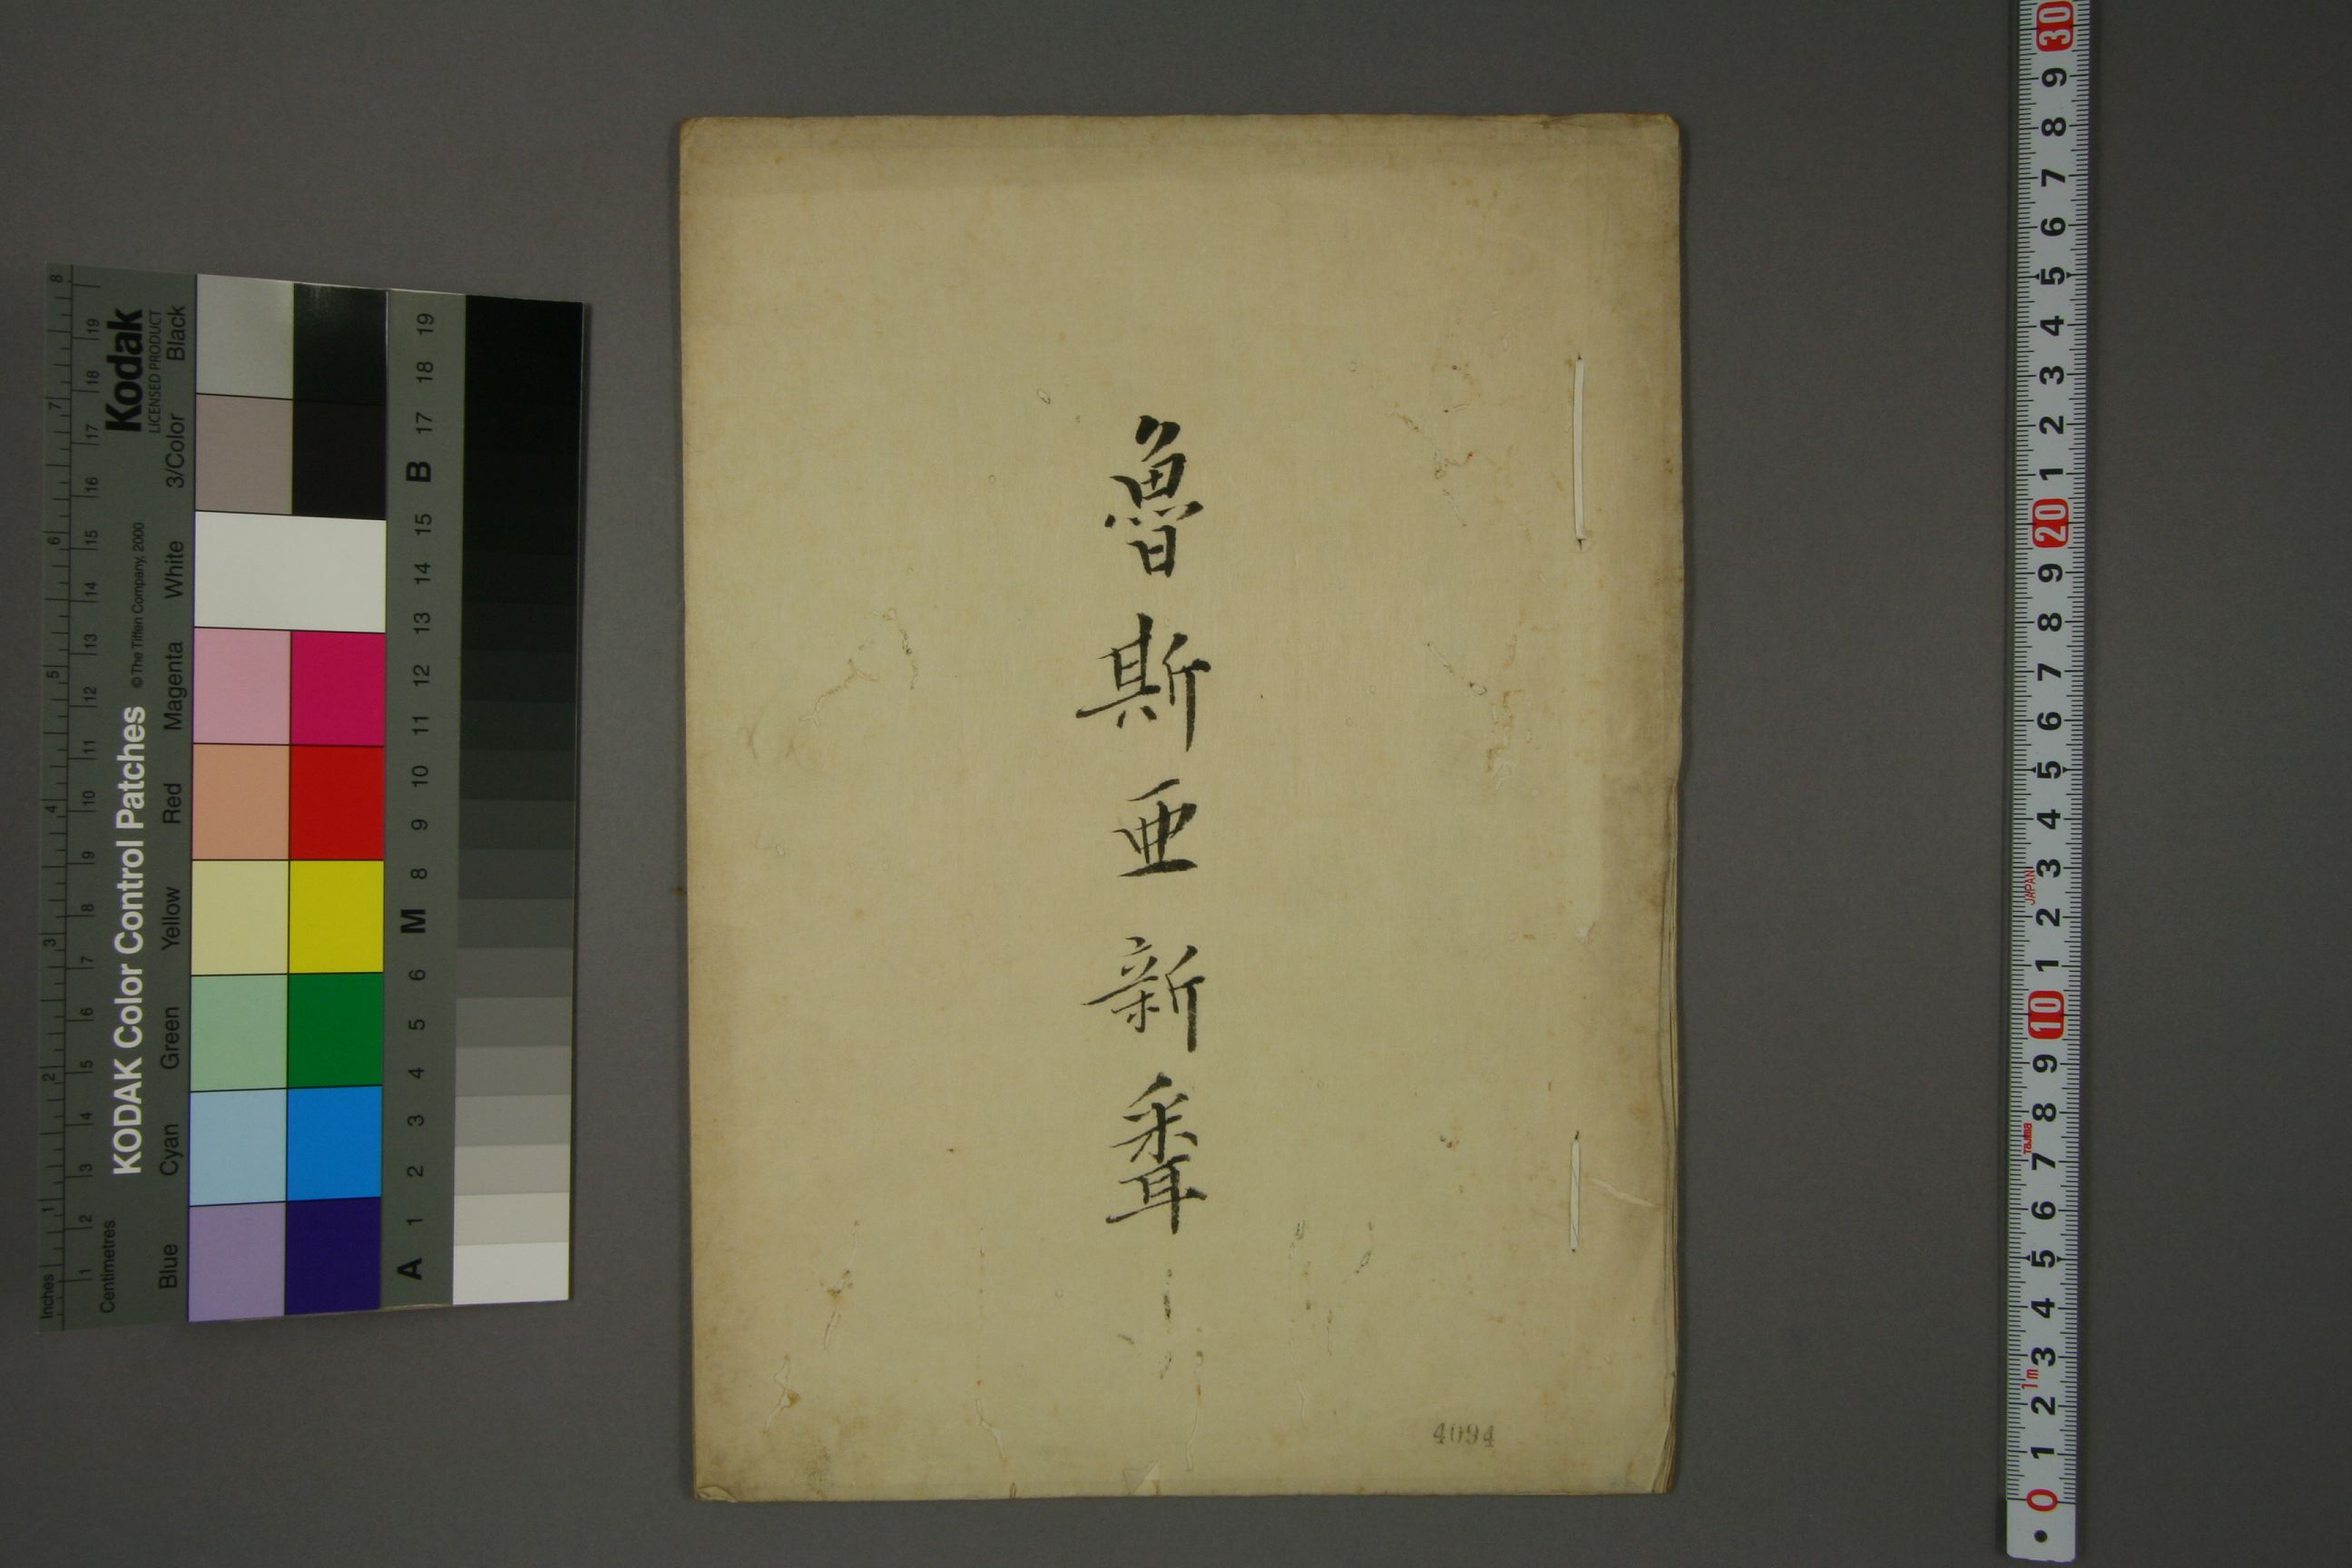 Inches 1 2 3 4 5 6 7 8
Centimetres 1 2 13 14 5 6 7 8 9 10 11 12 13 14 15 16 17 18 19
KODAK Color Control Patches © The Tiffen Company, 2000 Kodak
LICENSED PRODUCT
Blue Cyan Green Yellow Red Magenta White 3/Color Black
A 1 2 3 4 5 6 M 8 9 10 11 12 13 14 15 B 17 18 19
魯斯亜新聞
4094
0 1 2 3 4 5 6 7 8 9 10 1 2 3 4 5 6 7 8 9 20 1 2 3 4 5 6 7 8 9 30
1m Tajima JAPAN